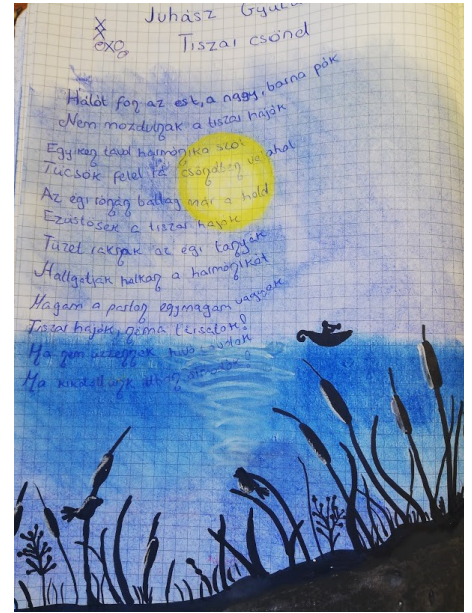 Juhász Gyula
Tiszai csönd
Hálót fon az est, a nagy, barna pók
Nem mozdulnak a tiszai hajók
Egyiken távol harmonika szól
Tücsök felel rá csöndben valahol
Az égi rónán ballag már a hold
Ezüstösek a tiszai hajók
Tüzet raknak az égi tanyák
Hallgatják halkan a harmonikát
Magam a parton egymagam vagyok
Tiszai hajók, néma társatok!
Ma nem üzennek hívó távolok
Ma kikötöttünk itthon